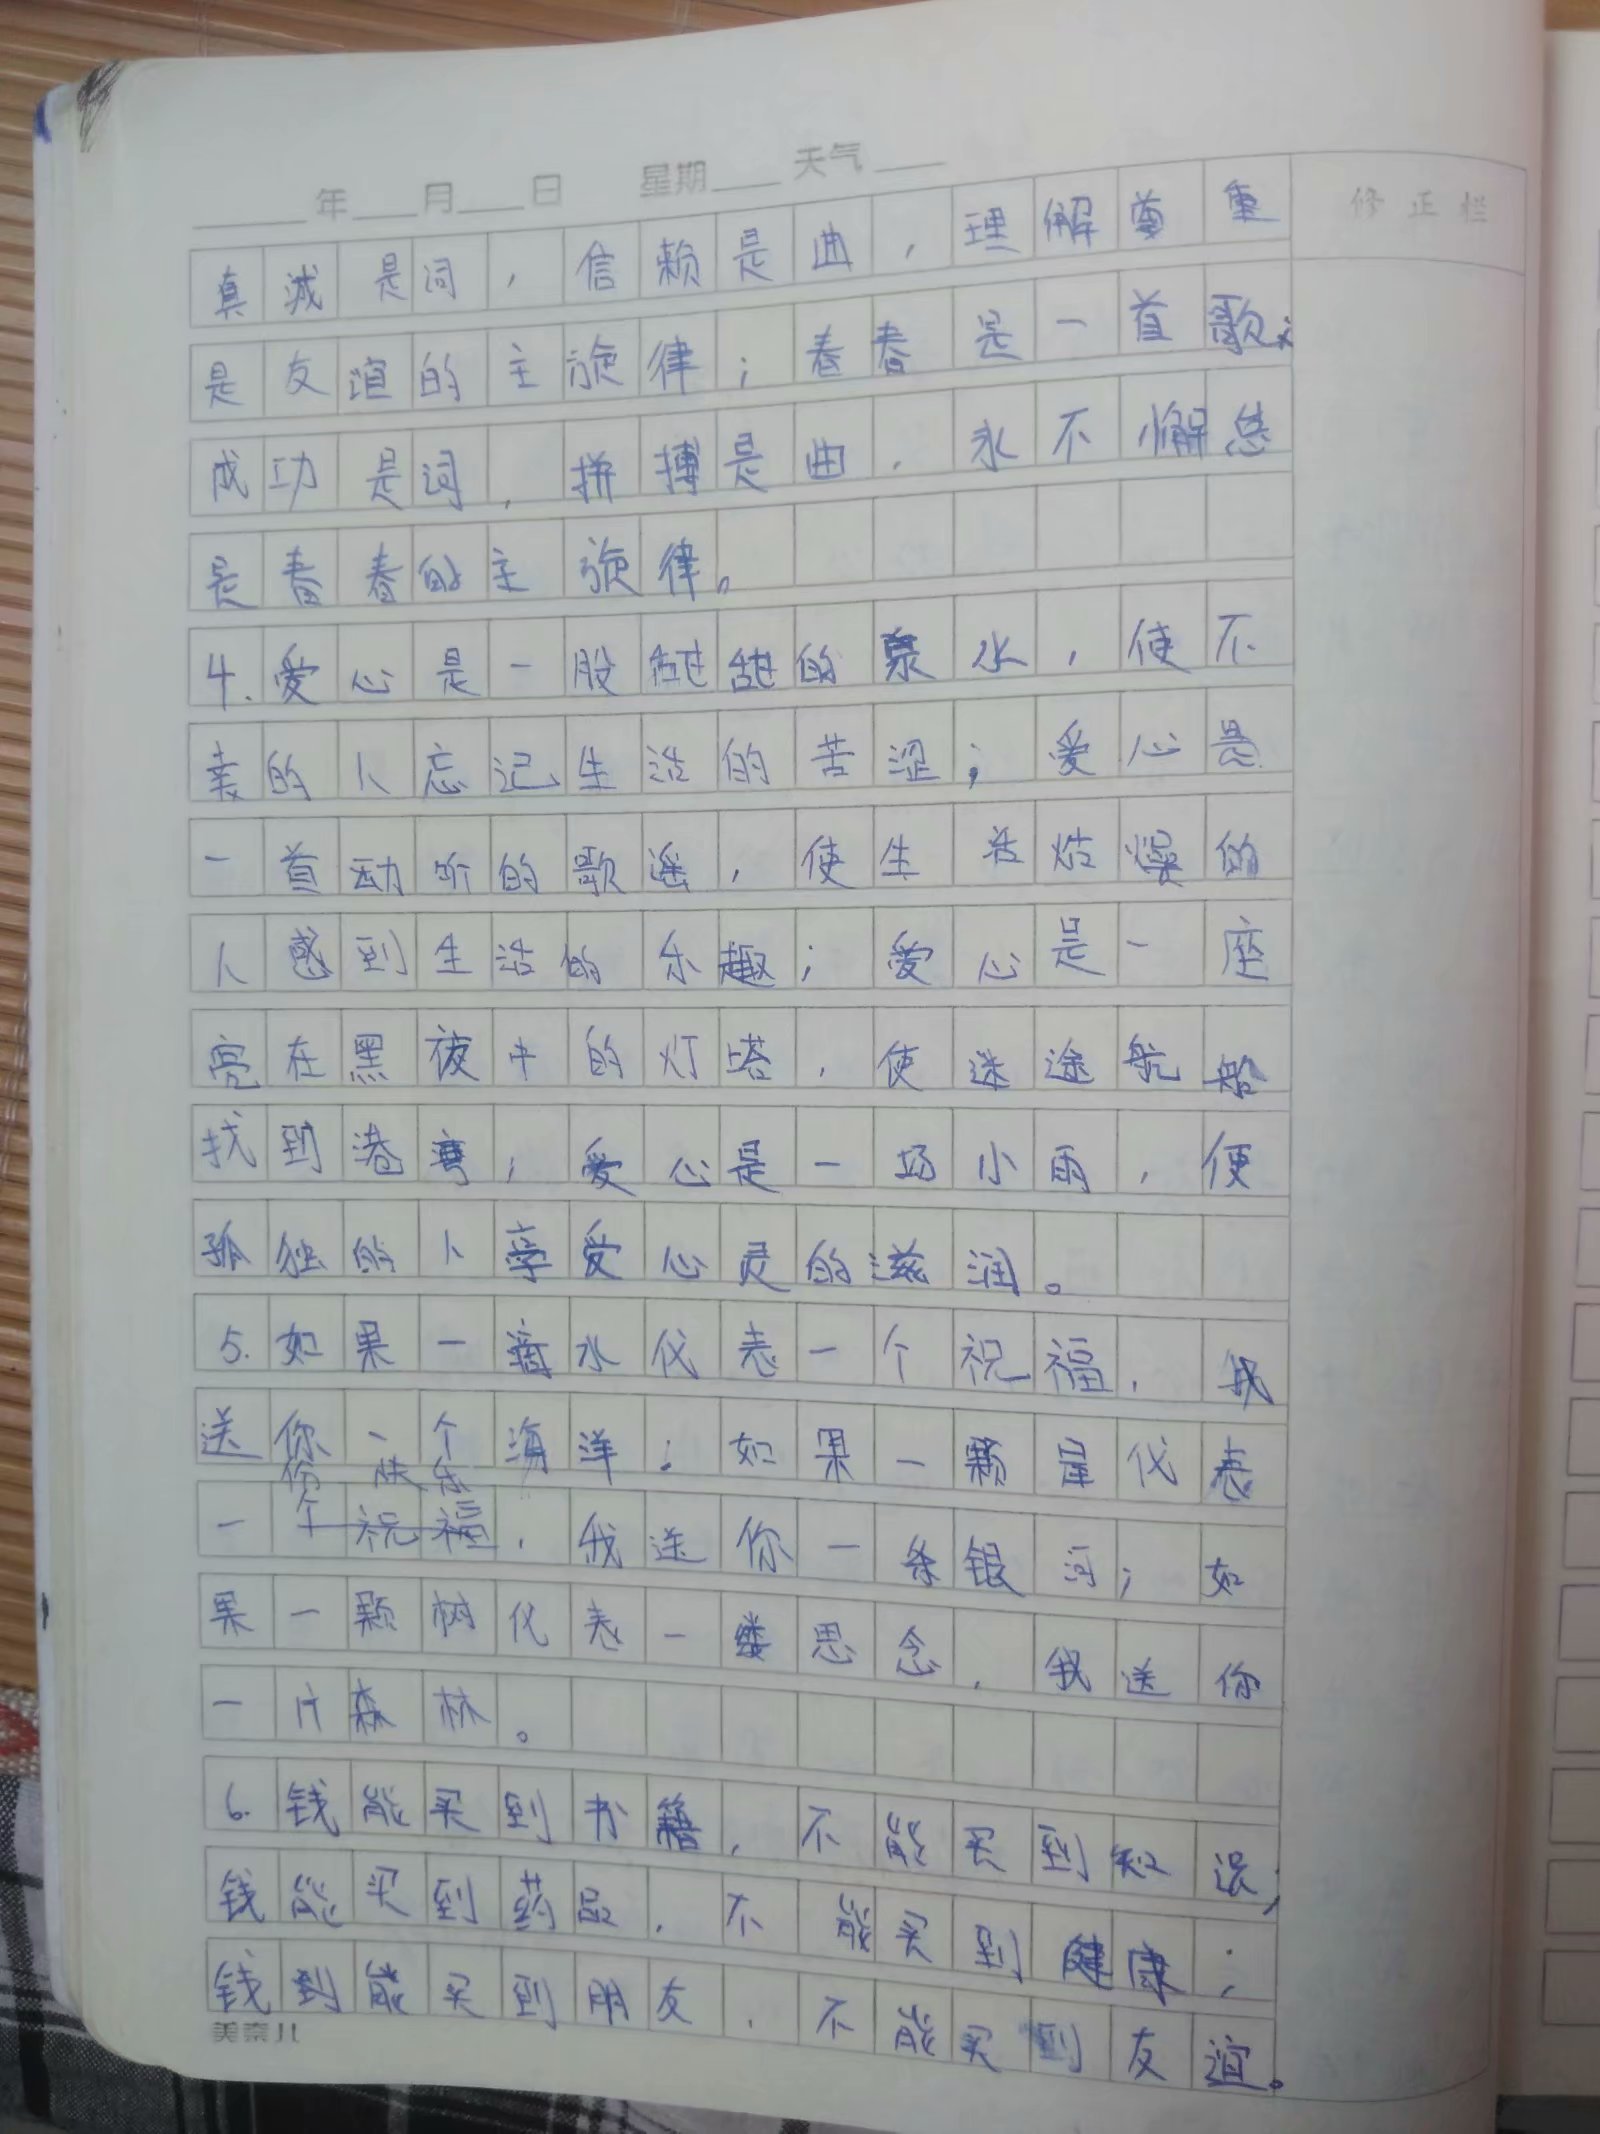 年 月 日 星期 天气
修正栏
真诚是词，信赖是曲，理解尊重
是友谊的主旋律；春春是一首歌，
成功是词，拼搏是曲，永不懈怠
是春春的主旋律。
4.爱心是一股甜甜的泉水，使不
幸的人忘记生活的苦涩；爱心是
一首动听的歌谣，使生活枯燥的
人感到生活的乐趣；爱心是一座
亮在黑夜中的灯塔，使迷途航船
找到港湾；爱心是一场小雨，使
孤独的人享受心灵的滋润。
5.如果一滴水代表一个祝福，我
送你一个海洋；如果一颗星代表
份快乐
一个祝福，我送你一条银河；如
果一颗树代表一缕思念，我送你
一片森林。
6.钱能买到书籍，不能买到知识；
钱能买到药品，不能买到健康；
钱到能买到朋友，不能买到友谊。
美奈儿